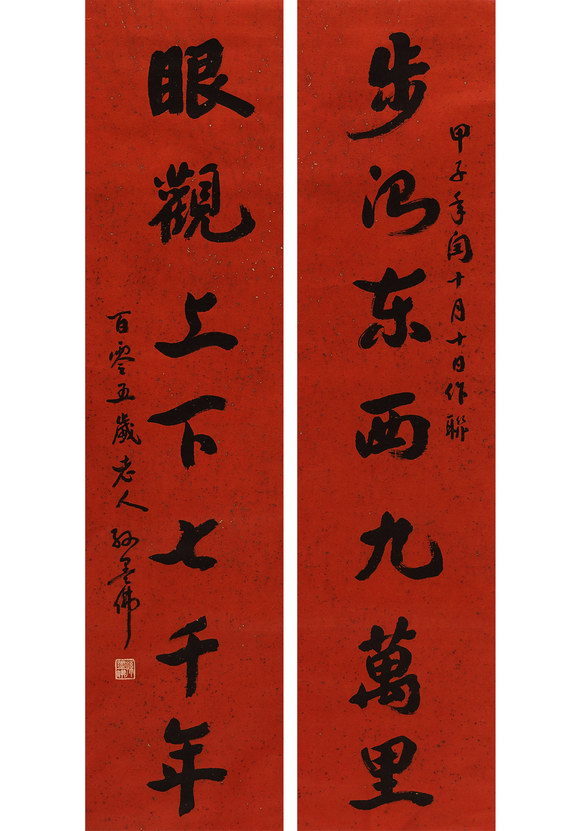 步东西九萬里
甲子年闰十月十日作聯
眼觀上下七千年
百零五歲老人孙墨佛